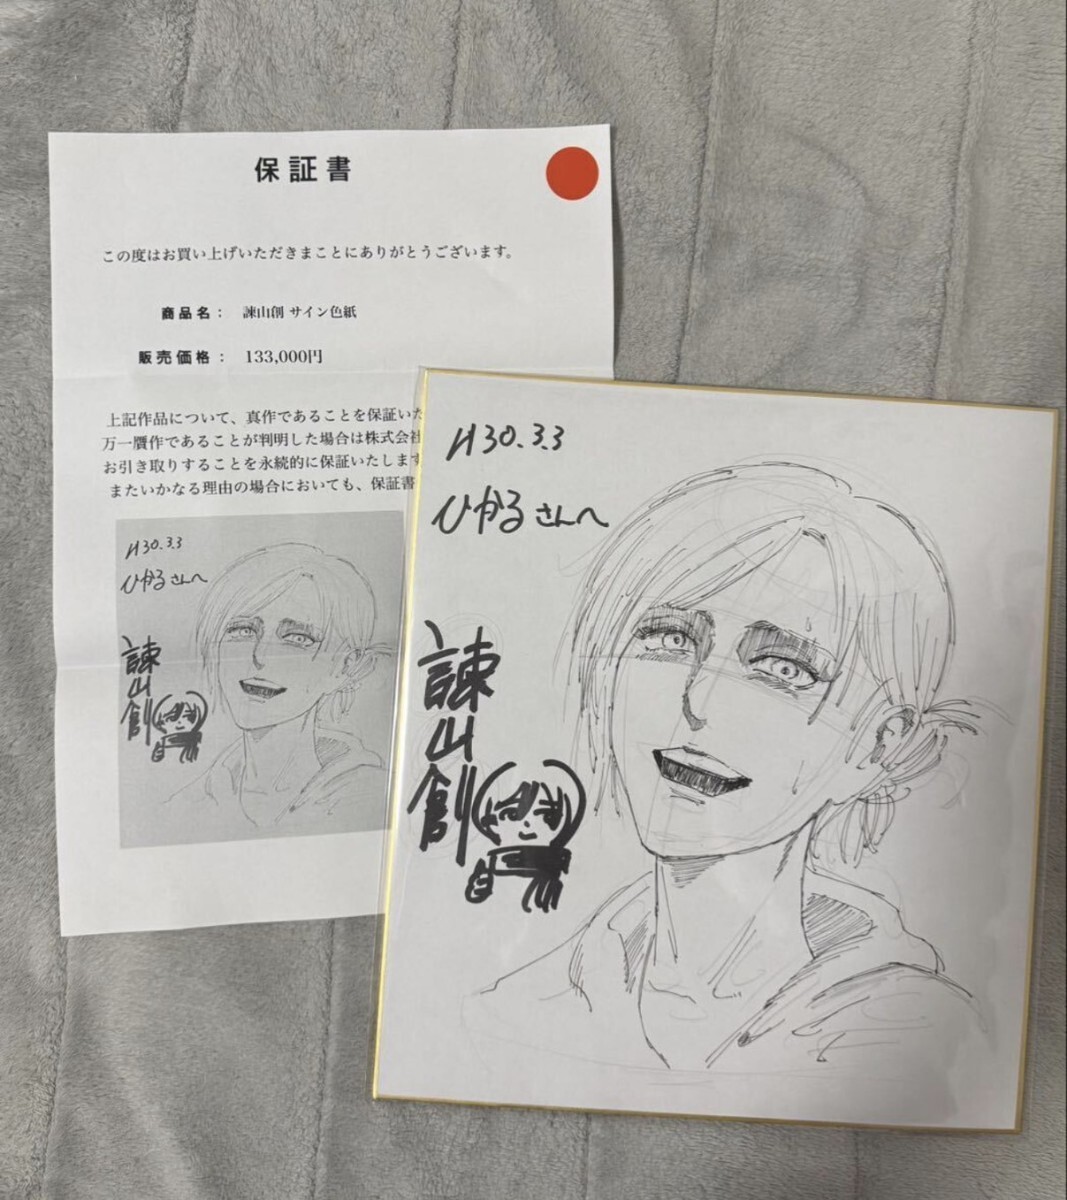 保証書
この度はお買い上げいただきまことにありがとうございます。
商品名： 諫山創 サイン色紙
販売価格： 133,000円
上記作品について、真作であることを保証いた
万一贋作であることが判明した場合は株式会社
お引き取りすることを永続的に保証いたします
またいかなる理由の場合においても、保証書
H30.3.3
ひかるさんへ
諫山創
H30.3.3
ひかるさんへ
諫山創